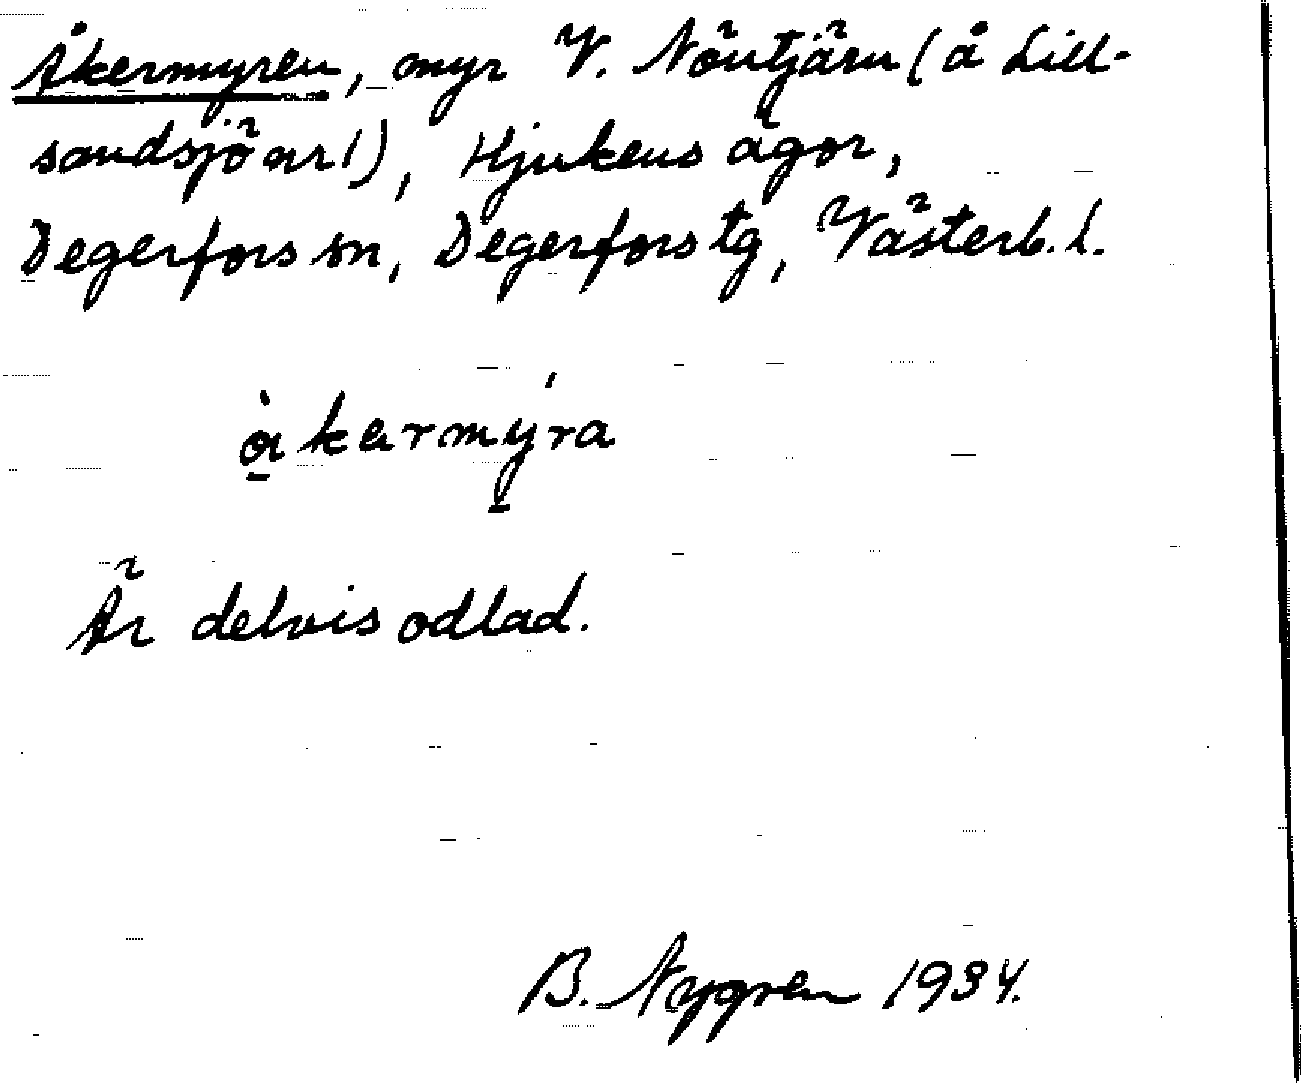 Åkermyren, myr V. Nöutjärn (å Lill-
sandsjö nr 1), Hjukens ägor,
Degerfors sn, Degerfors tg, Västerb. l.
å̀kermýra
Är delvis odlad.
B. Nygren 1934.